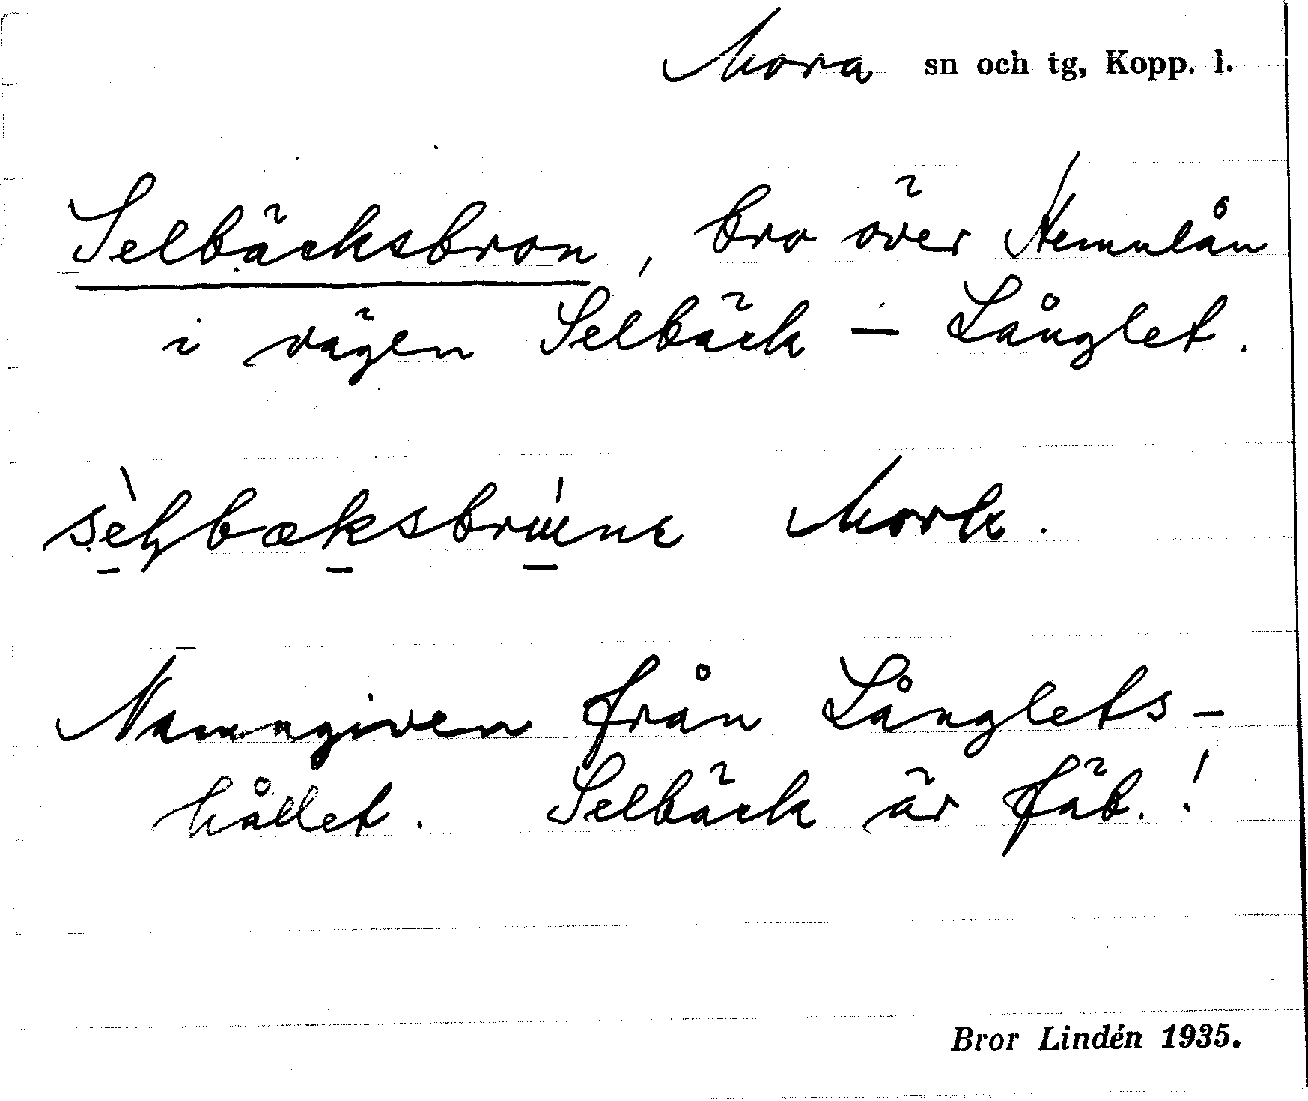 Mora sn och tg, Kopp. l.
Selbäcksbron, bro över Hemulån
i vägen Selbäck – Långlet.
Mork.
Namngiven från Långlets-
hållet. Selbäck är fäb.!
Bror Lindén 1935.